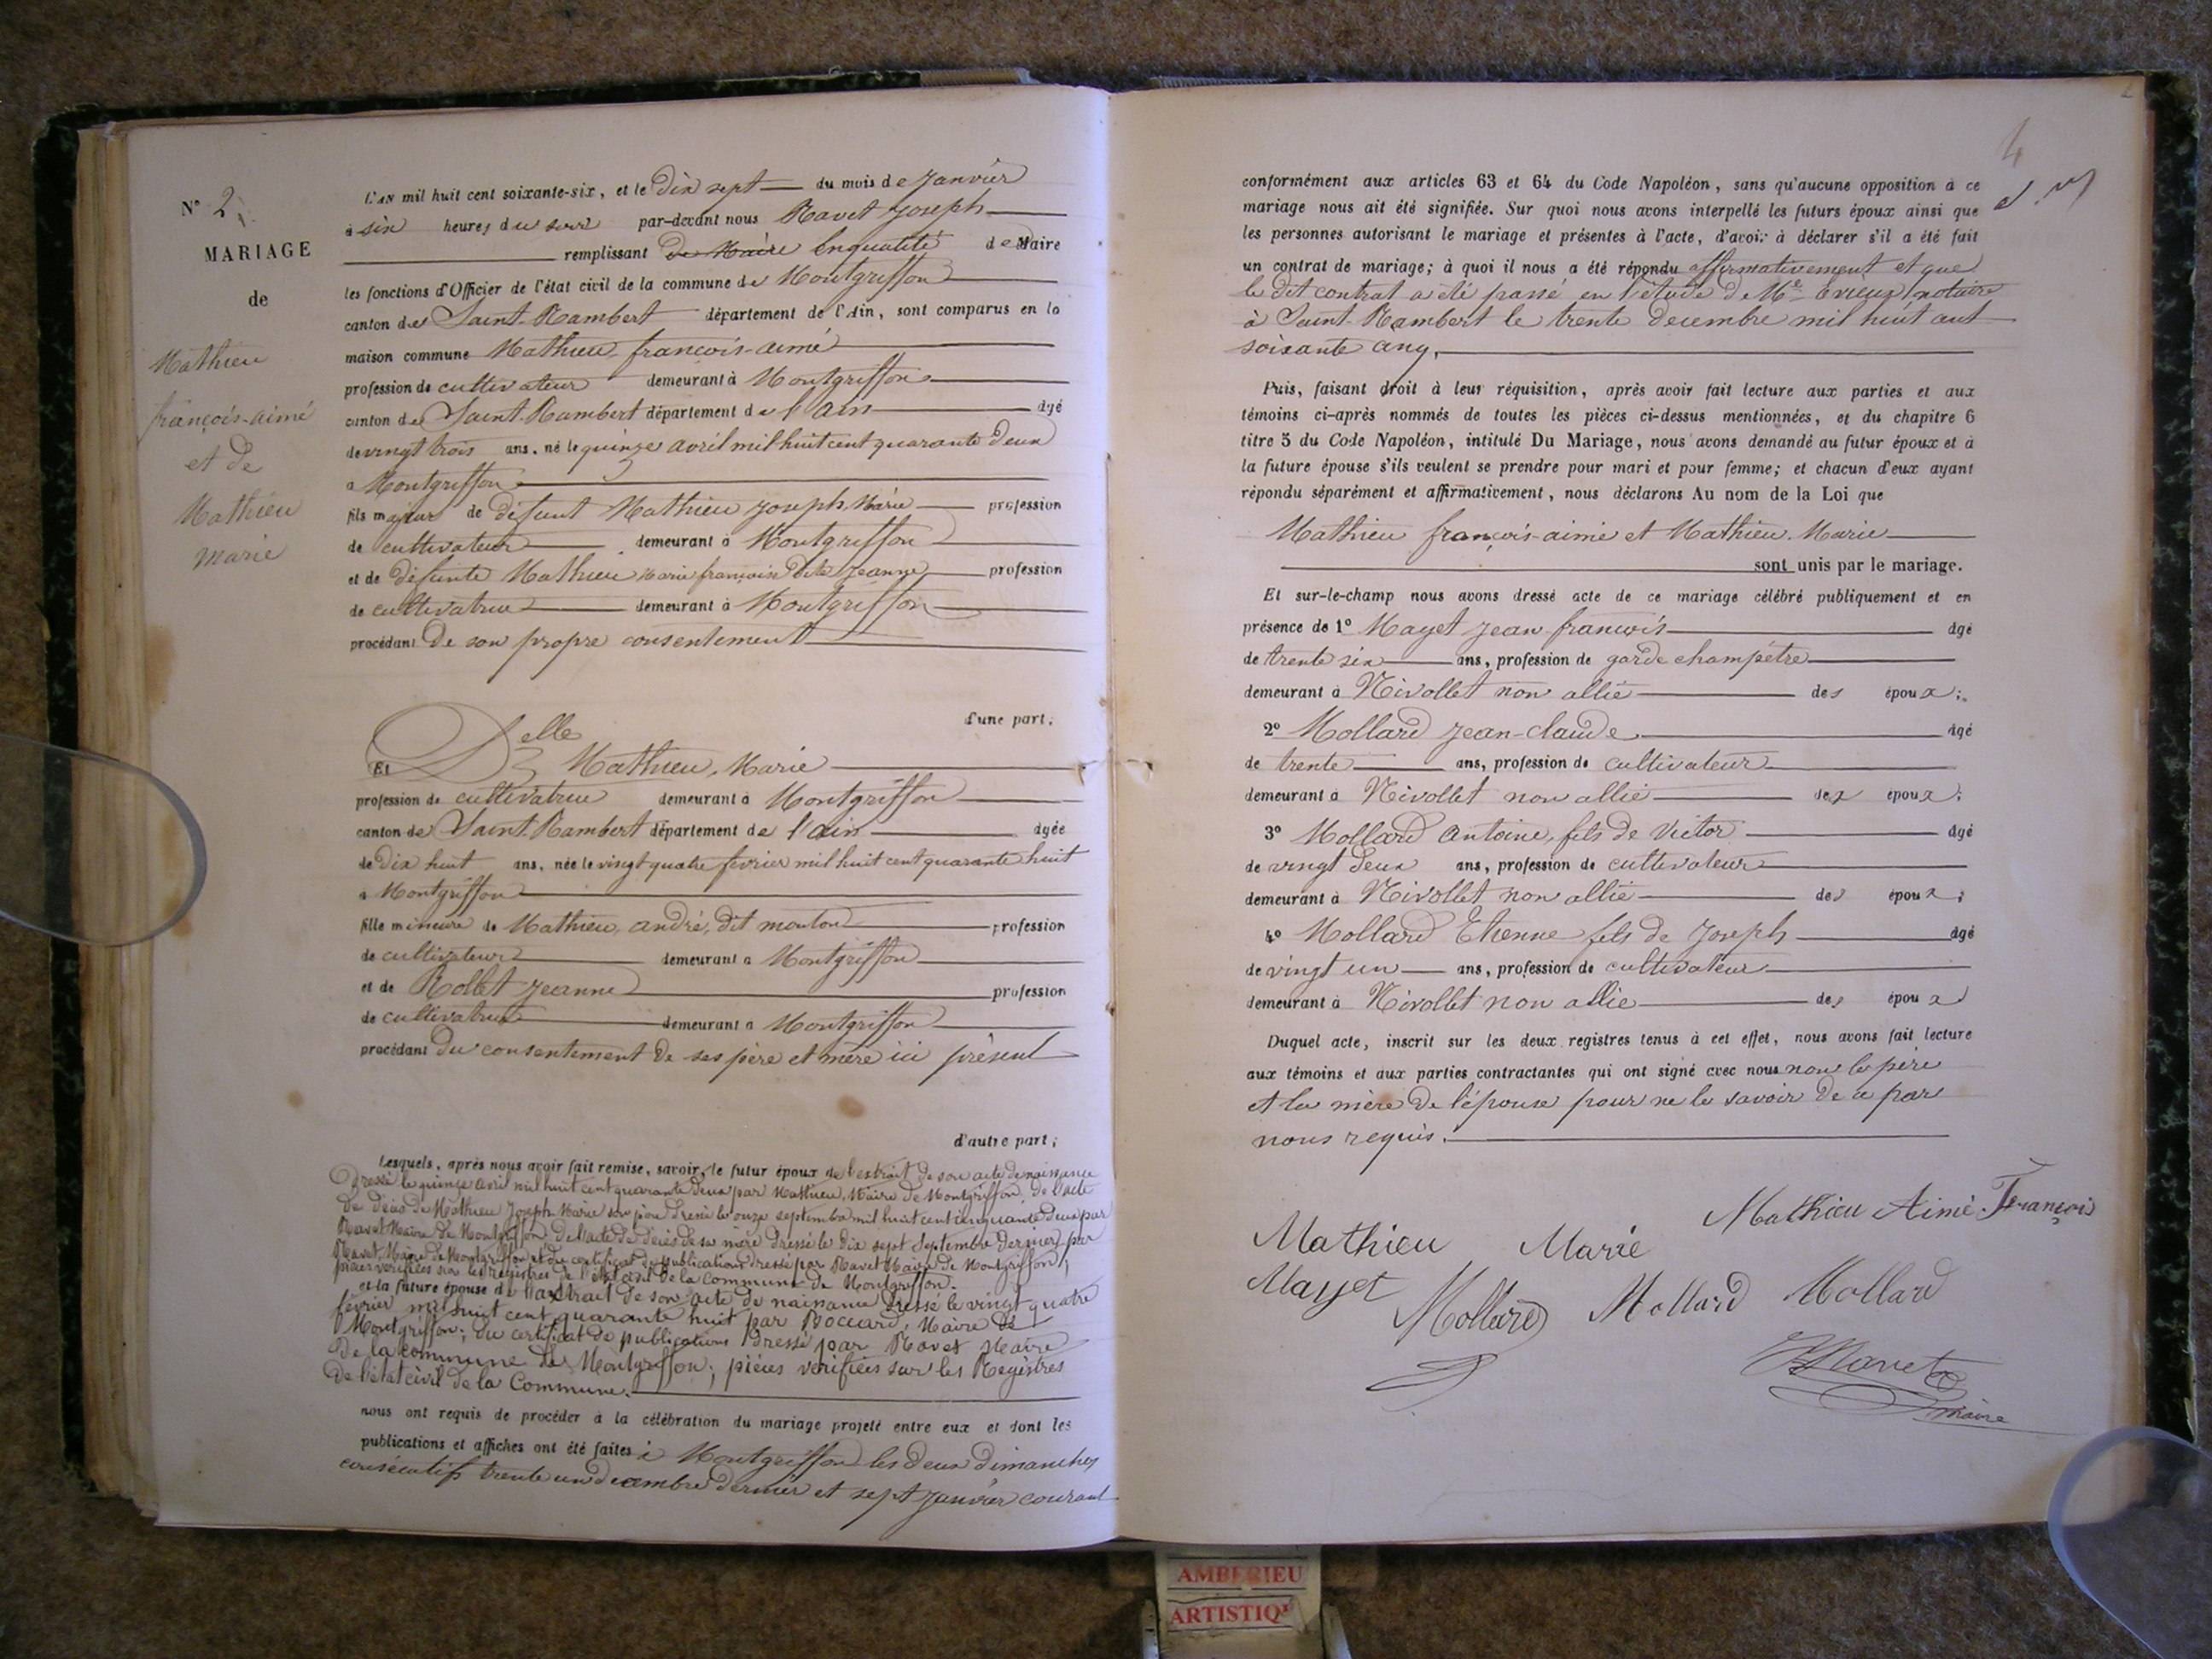 N° 2
MARIAGE
de
Mathieu
françois-aimé
et de
Mathieu
marie
L'AN mil huit cent soixante-six, et le Dix sept du mois de Janvier
à six heures du soir par-devant nous Ravet Joseph
remplissant de Maire En qualité de Maire
les fonctions d'Officier de l'état civil de la commune de Montgriffon
canton de Saint-Rambert département de l'Ain, sont comparus en la
maison commune Mathieu, françois-aimé
profession de cultivateur demeurant à Montgriffon
canton de Saint-Rambert département de l'Ain âgé
de vingt trois ans, né le quinze avril mil huit cent quarante Deux
à Montgriffon
fils majeur de défunt Mathieu Joseph-Marie profession
de cultivateur demeurant à Montgriffon
et de défunte Mathieu Marie françoise dite Jeanne profession
de cultivatrice demeurant à Montgriffon
procédant De son propre consentement
d'une part;
Et Delle Mathieu, Marie
profession de cultivatrice demeurant à Montgriffon
canton de Saint-Rambert département de l'Ain âgée
de Dix huit ans, née le vingt quatre février mil huit cent quarante huit
à Montgriffon
fille mineure de Mathieu, andré, dit mouton profession
de cultivateur demeurant à Montgriffon
et de Rollet Jeanne profession
de cultivatrice demeurant à Montgriffon
procédant du consentement de ses père et mère ici présent
d'autre part;
Lesquels, après nous avoir fait remise, savoir, le futur époux de l'extrait de son acte de naissance
Dressé le quinze avril mil huit cent quarante deux par Mathieu, Maire de Montgriffon, de l'acte
de décès de Mathieu Joseph-Marie son père dressé le onze septembre mil huit cent cinquante deux par
Ravet Maire de Montgriffon De l'acte de décès de sa mère dressé le dix sept Septembre dernier par
Ravet, Maire de Montgriffon et du certificat de publications dressé par Ravet Maire de Montgriffon,
pièces vérifiées sur les registres de l'état civil de la commune de Montgriffon.
et la future épouse de l'extrait de son acte de naissance dressé le vingt quatre
février mil huit cent quarante huit par Boccard, Maire de
Montgriffon; du certificat de publications dressé par Ravet Maire
De la commune de Montgriffon; pièces vérifiées sur les Registres
De l'état civil de la Commune.
nous ont requis de procéder à la célébration du mariage projeté entre eux et dont les
publications et affiches ont été faites à Montgriffon les deux Dimanches
consécutifs trente un décembre dernier et sept Janvier courant
4
conformément aux articles 63 et 64 du Code Napoléon, sans qu'aucune opposition à ce
mariage nous ait été signifiée. Sur quoi nous avons interpellé les futurs époux ainsi que
les personnes autorisant le mariage et présentes à l'acte, d'avoir à déclarer s'il a été fait
un contrat de mariage; à quoi il nous a été répondu affirmativement et que
le dit contrat a été passé en l'étude de Me notaire
à Saint-Rambert le trente decembre mil huit cent
soixante cinq.
Puis, faisant droit à leur réquisition, après avoir fait lecture aux parties et aux
témoins ci-après nommés de toutes les pièces ci-dessus mentionnées, et du chapitre 6
titre 5 du Code Napoléon, intitulé Du Mariage, nous avons demandé au futur époux et à
la future épouse s'ils veulent se prendre pour mari et pour femme; et chacun d'eux ayant
répondu séparément et affirmativement, nous déclarons Au nom de la Loi que
Mathieu françois-aimé et Mathieu. Marie
sont unis par le mariage.
Et sur-le-champ nous avons dressé acte de ce mariage célébré publiquement et en
présence de 1° Mayet Jean françois âgé
de trente six ans, profession de garde champêtre
demeurant à Nivollet non allié des époux;
2° Mollard Jean-claude âgé
de trente ans, profession de cultivateur
demeurant à Nivollet non allié des époux;
3° Mollard Antoine, fils de Victor âgé
de vingt Deux ans, profession de cultivateur
demeurant à Nivollet non allié des époux;
4° Mollard Etienne fils de Joseph âgé
de vingt un ans, profession de cultivateur
demeurant à Nivollet non allié des époux
Duquel acte, inscrit sur les deux registres tenus à cet effet, nous avons fait lecture
aux témoins et aux parties contractantes qui ont signé avec nous non le père
et la mère De l'épouse pour ne le savoir De ce par
nous requis.
Mathieu Aimé François
Mathieu Marie
Mayet Mollard Mollard Mollard
Ravet
maire
AMBERIEU
ARTISTIQ